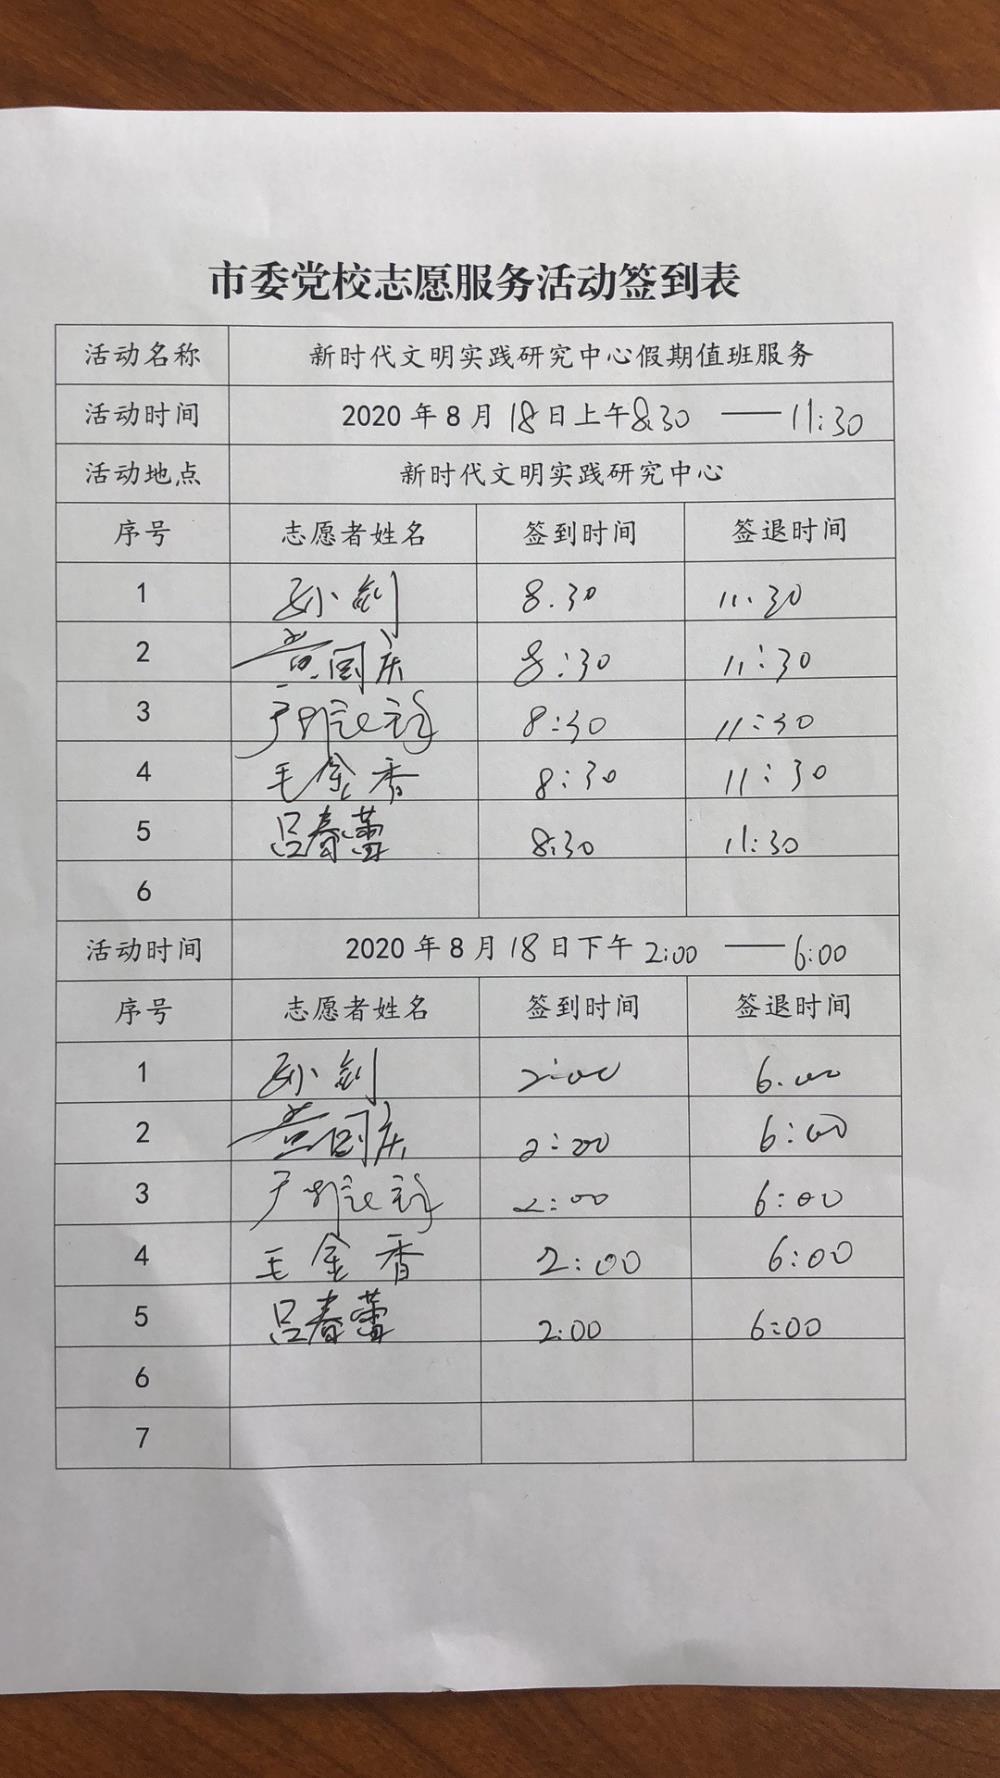 市委党校志愿服务活动签到表
活动名称 新时代文明实践研究中心假期值班服务
活动时间 2020年8月18日上午8:30 —— 11:30
活动地点 新时代文明实践研究中心
序号 志愿者姓名 签到时间 签退时间
1 孙剑 8.30 11.30
2 黄国庆 8:30 11:30
3 8:30 11:30
4 毛金香 8:30 11:30
5 吕春蕾 8:30 11:30
6
活动时间 2020年8月18日下午2:00 —— 6:00
序号 志愿者姓名 签到时间 签退时间
1 孙剑 2:00 6.00
2 黄国庆 2:00 6:00
3 2:00 6:00
4 毛金香 2:00 6:00
5 吕春蕾 2:00 6:00
6
7